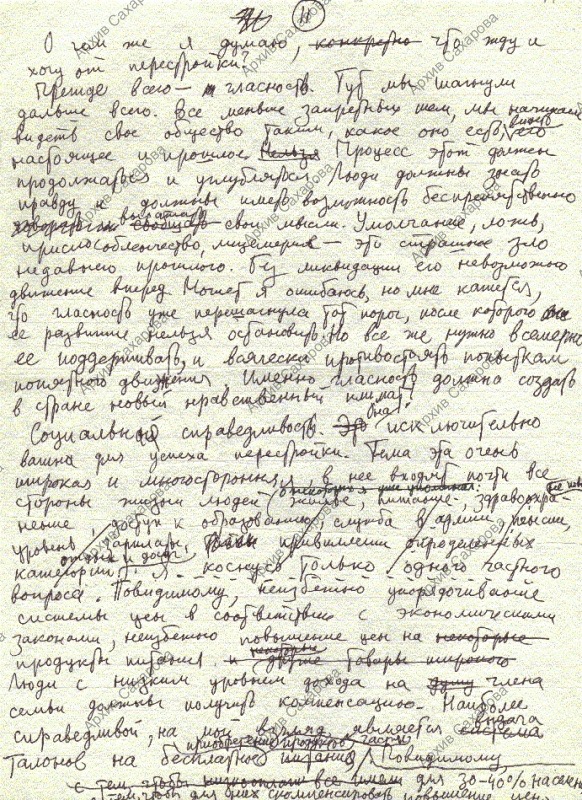 11
О чем же я думаю, конкретно что жду и
хочу от перестройки?
Прежде всего — гласность. Тут мы шагнули
дальше всего. Все меньше запретных тем, мы начинаем
видеть свое общество таким, какое оно есть, видеть его
настоящее и прошлое. Нельзя Процесс этот должен
продолжаться и углубляться. Люди должны знать
правду и должны иметь возможность беспрепятственно
выражать
свои мысли. Умолчание, ложь,
приспособленчество, лицемерие — это страшное зло
недавнего прошлого. Без ликвидации его невозможно
движение вперед. Может я ошибаюсь, но мне кажется,
что гласность уже перешагнула тот порог, после которого
ее развитие нельзя остановить, но все же нужно всемерно
ее поддерживать, и всячески противостоять попыткам
попятного движения. Именно гласность должна создать
в стране новый нравственный климат!
Социальная справедливость. Это исключительно
важна для успеха перестройки. Тема эта очень
широкая и многосторонняя, в нее входят почти все
стороны жизни людей жилье, питание, здравоохра-
нение доступ к образованию, служба в армии, пенсии,
уровень зарплаты, привилегии определенных
категорий Я коснусь только одного частного
вопроса. Повидимому, неизбежно упорядочивание
системы цен в соответствие с экономическими
законами, неизбежно повышение цен на некоторые
некоторые
продукты питания и другие товары широкого
Люди с низким уровнем дохода на душу члена
семьи должны получить компенсацию. Наиболее
справедливой, на мой взгляд является выдача система
приобретение продуктов
талонов на бесплатное питание Повидимому
с тем, чтобы для 30-40% населен
с тем, чтобы для них скомпенсировать повышение цен
Архив Сахарова